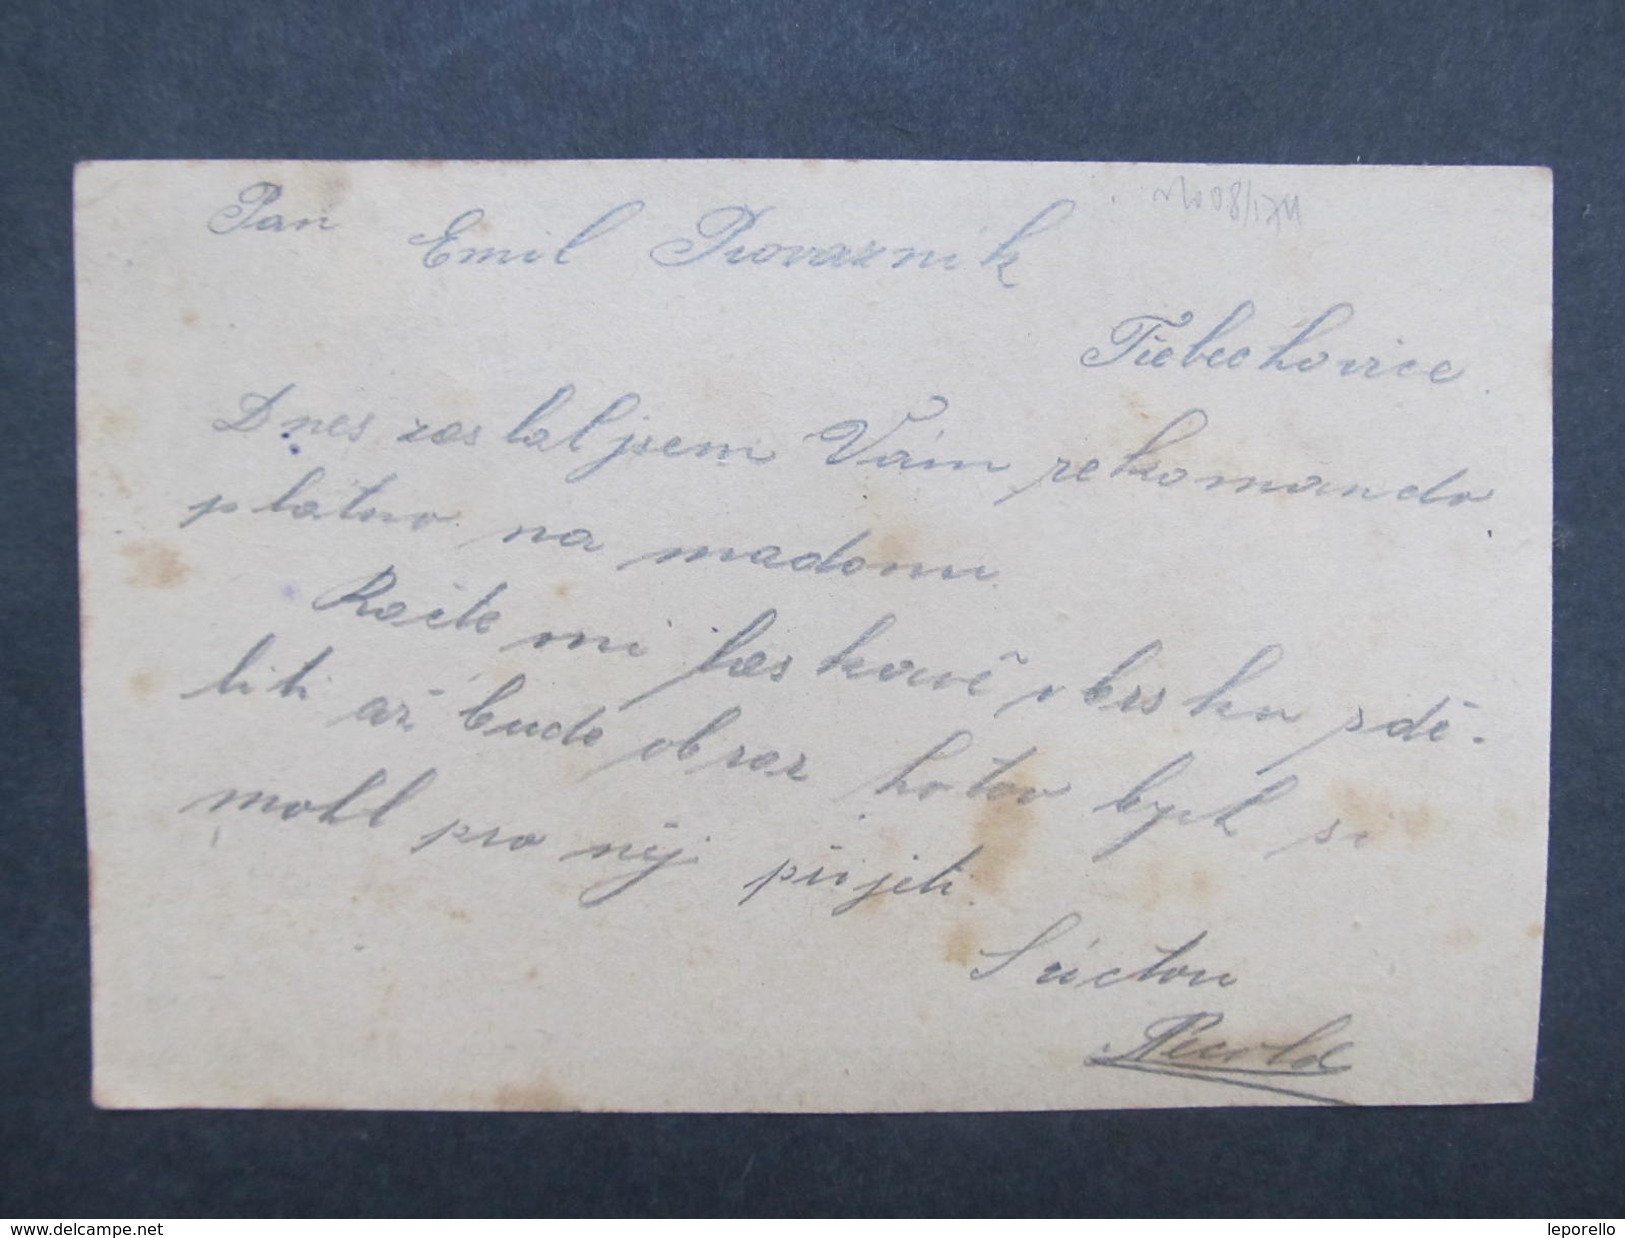 Pan Emil Provazník
Třebechovice
Dnes zaslal jsem Vám rekomando
plátno na madonu.
Račte mi laskavě obrsku sdě-
liti až bude obraz hotov bych si
mohl pro něj přijeti.
S úctou
www.delcampe.net
leporello